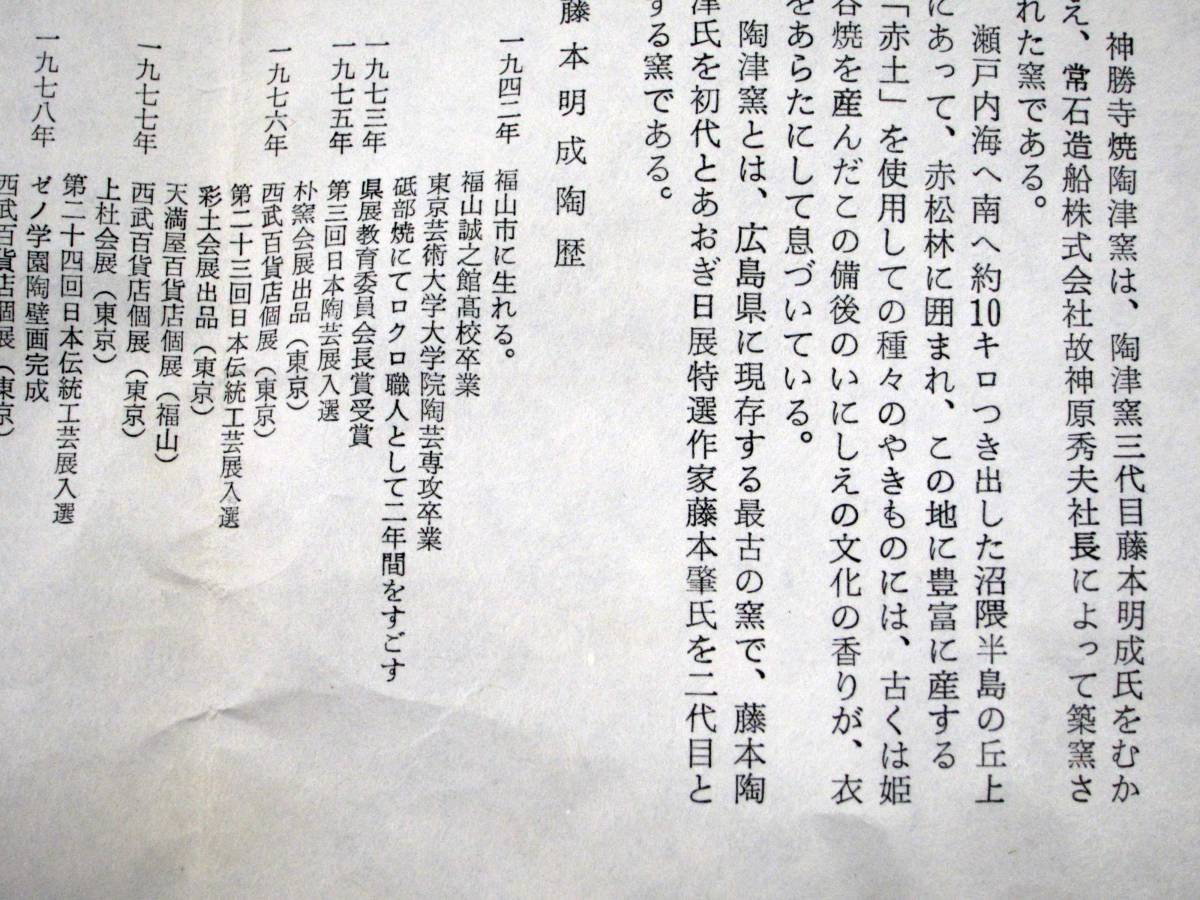 神勝寺焼陶津窯は、陶津窯三代目藤本明成氏をむか
え、常石造船株式会社故神原秀夫社長によって築窯さ
れた窯である。
瀬戸内海へ南へ約10キロつき出した沼隈半島の丘上
にあって、赤松林に囲まれ、この地に豊富に産する
「赤土」を使用しての種々のやきものには、古くは姫
谷焼を産んだこの備後のいにしえの文化の香りが、衣
をあらたにして息づいている。
陶津窯とは、広島県に現存する最古の窯で、藤本陶
津氏を初代とあおぎ日展特選作家藤本肇氏を二代目と
する窯である。
藤本明成陶歴
一九四二年 福山市に生れる。
福山誠之館高校卒業
東京芸術大学大学院陶芸専攻卒業
砥部焼にてロクロ職人として二年間をすごす
一九七三年 県展教育委員会長賞受賞
一九七五年 第三回日本陶芸展入選
朴窯会展出品（東京）
一九七六年 西武百貨店個展（東京）
第二十三回日本伝統工芸展入選
彩土会展出品（東京）
天満屋百貨店個展（福山）
一九七七年 西武百貨店個展（東京）
上杜会展（東京）
第二十四回日本伝統工芸展入選
一九七八年 ゼノ学園陶壁画完成
西武百貨店個展（東京）